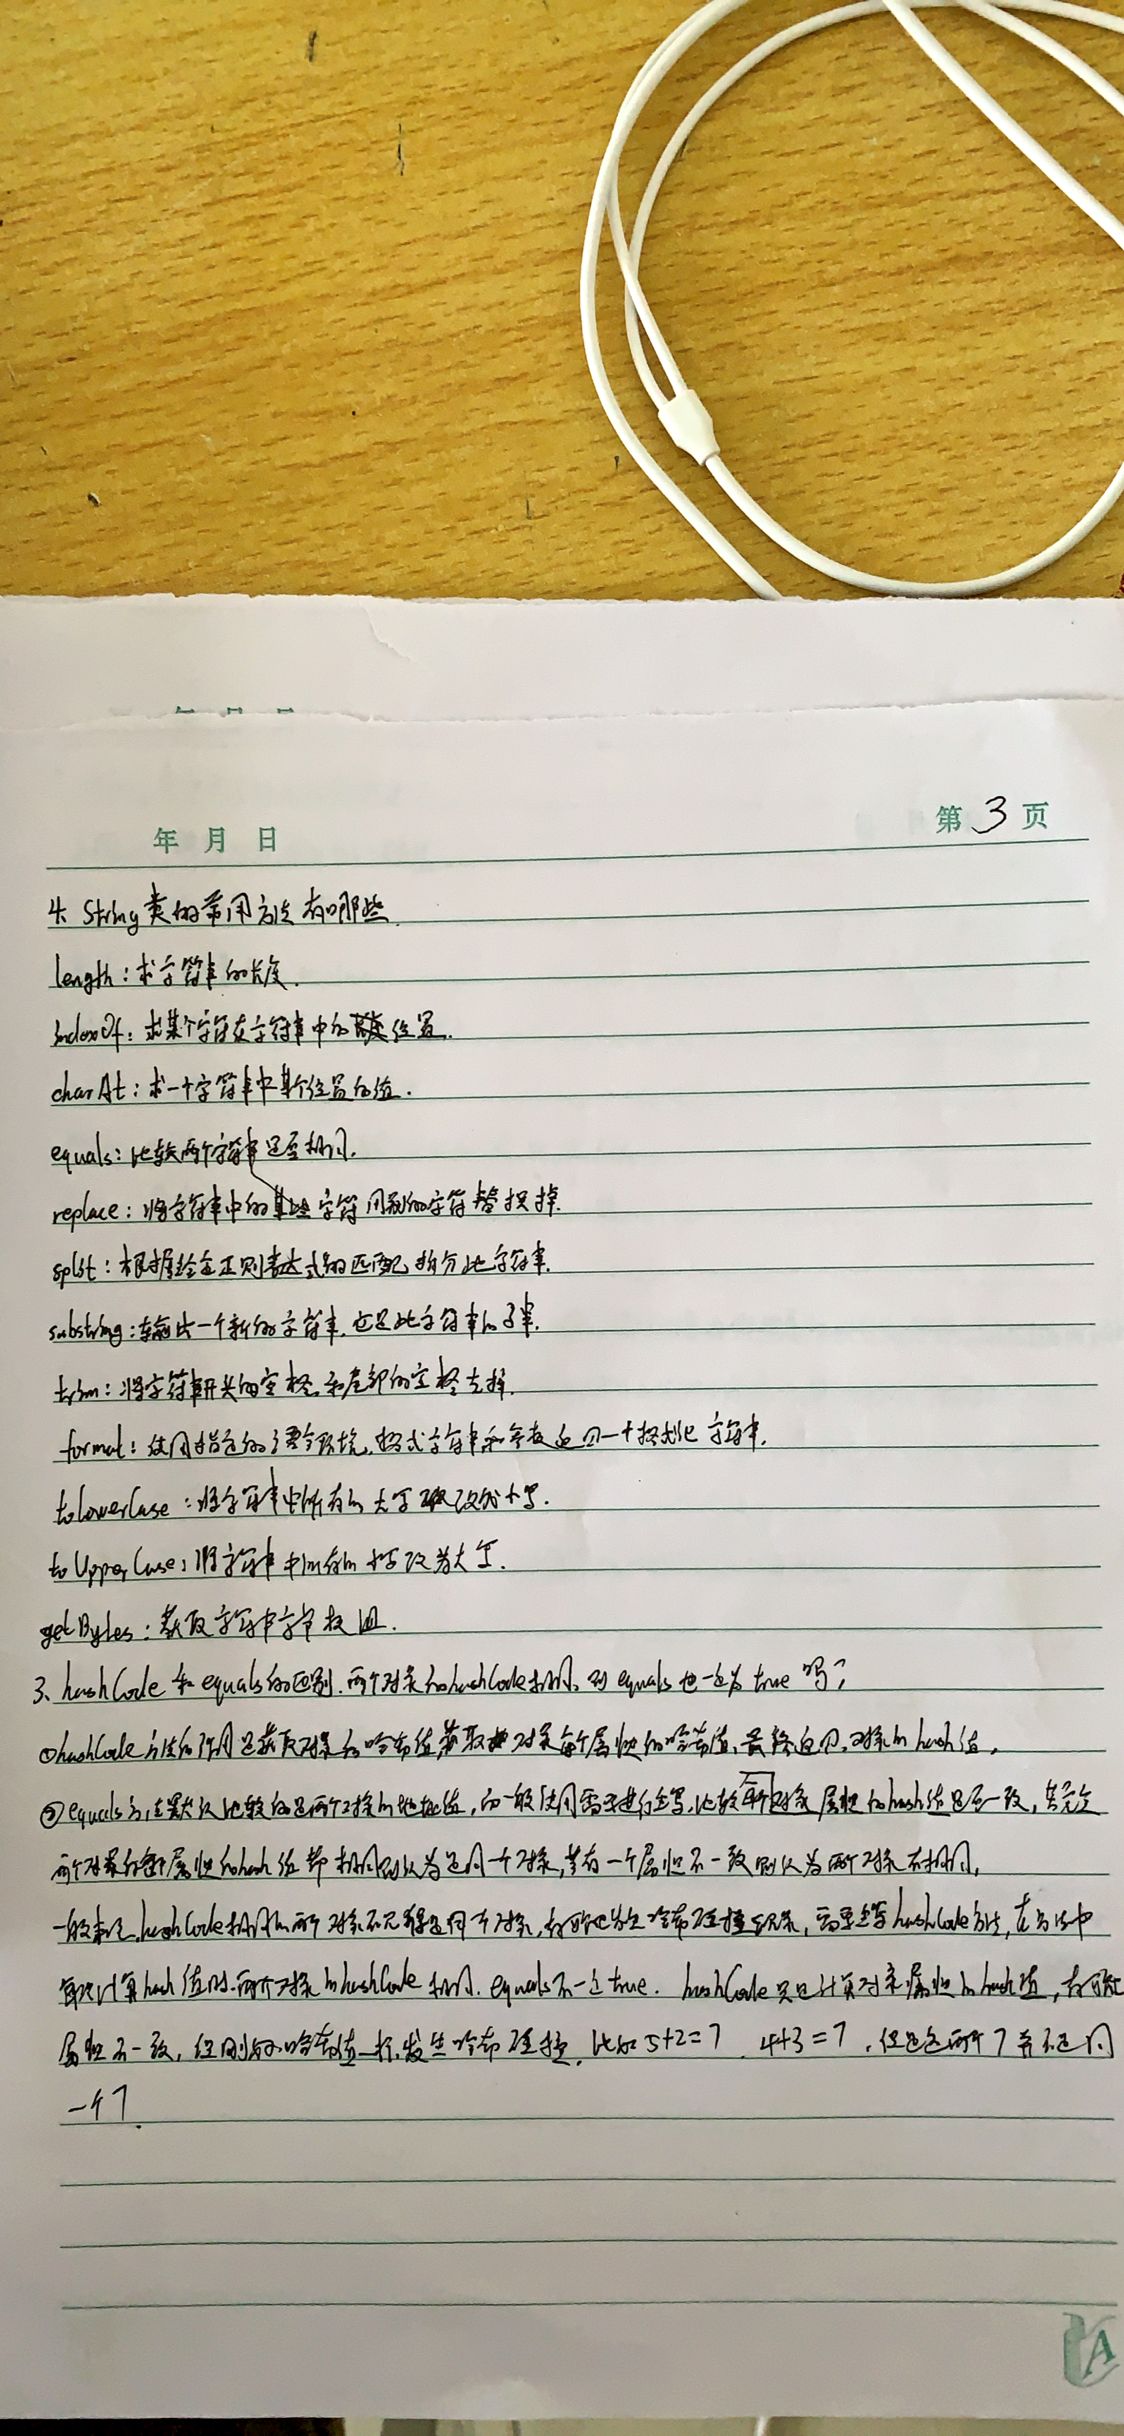 年 月 日
第 3 页
4. String 类的常用方法有哪些
length：求字符串的长度.
indexOf：求某个字符在字符串中的位置.
charAt：求一个字符串中某个位置的值.
equals：比较两个字符串是否相同.
replace：将字符串中的某些字符用别的字符替换掉.
split：根据给定正则表达式的匹配拆分此字符串.
substring：输出一个新的字符串,它是此字符串的子串.
trim：将字符串开头的空格和尾部的空格去掉.
format：使用指定的语言环境,格式字符串和参数返回一个格式化字符串.
toLowerCase：将字符串中所有的大写改成小写.
toUpperCase：将字符串中所有的小写改为大写.
getBytes：获取字符串字节数组.
3、hashCode 和 equals的区别.两个对象的hashCode相同,则equals也一定为 true 吗？
①hashCode方法的作用是获取对象的哈希值,获取对象每个属性的哈希值,最终返回对象的hash值,
②equals方法默认比较的是两个对象的地址值,而一般使用需要进行重写,比较两个对象属性的hash值是否一致,
两个对象的每个属性的hash值都相同则认为是同一个对象,若有一个属性不一致则认为两个对象不相同,
一般来说,hashCode相同的两个对象不一定是同一个对象,有可能发生哈希碰撞现象,需要重写hashCode方法,在方法中
计算hash值时.两个对象的hashCode相同.equals不一定true. hashCode只是计算对象属性的hash值,有可能
属性不一致,但刚好哈希值一样,发生哈希碰撞.比如5+2=7 4+3=7,但是这两个7并不是同
一个7.
A